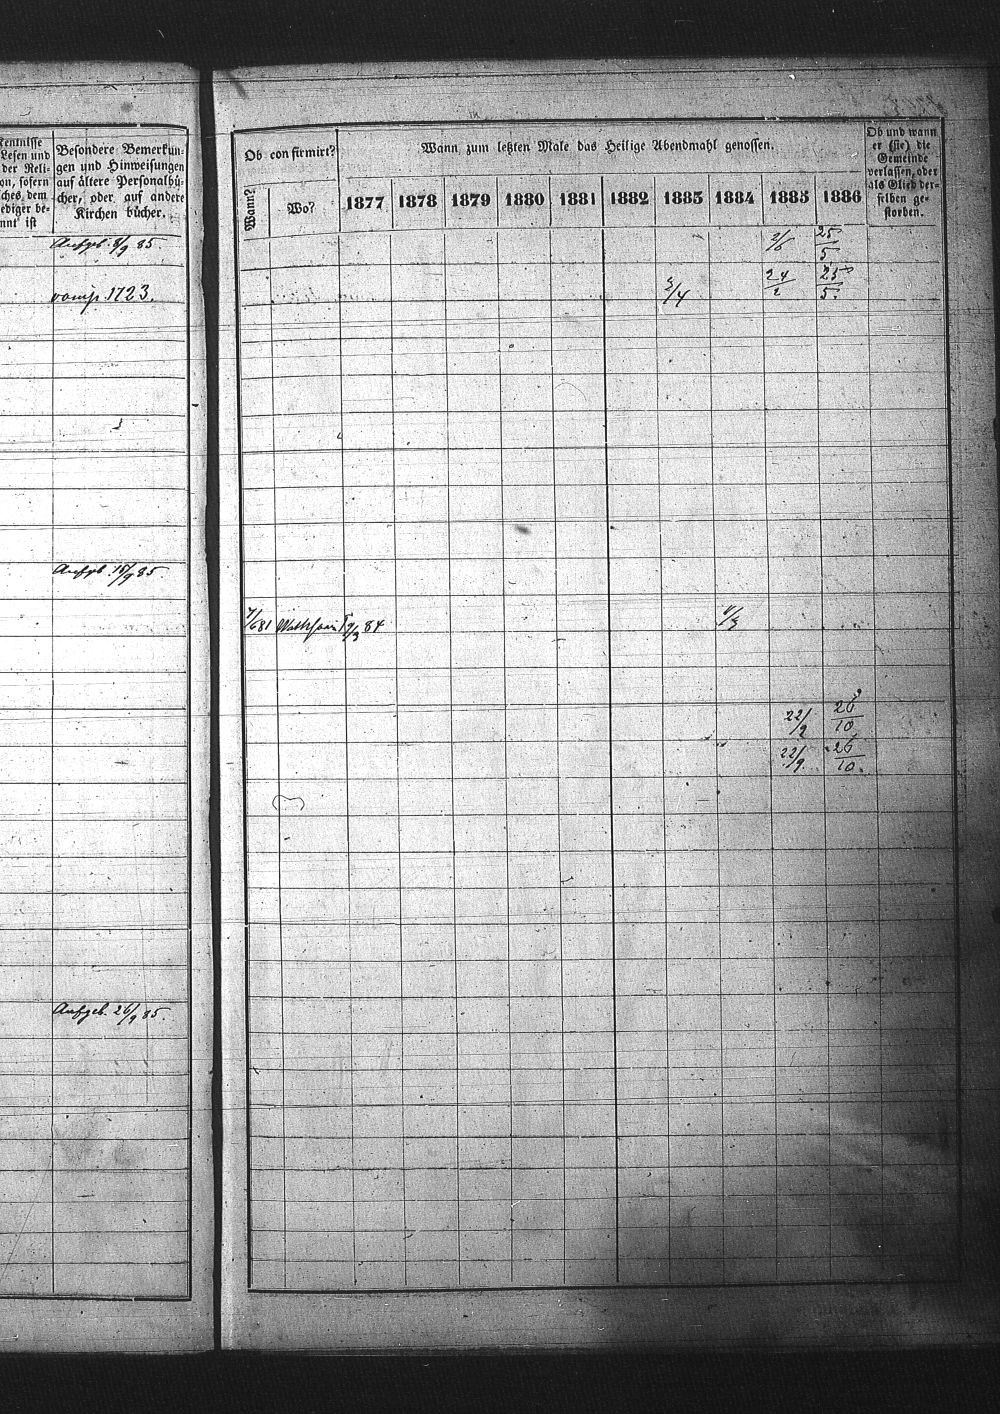 kentnisse
Lesen und
der Reli-
on, sofern
ches dem
ediger be-
nnt ist
Besondere Bemerkun-
gen und Hinweisungen
auf ältere Personalbü-
cher, oder auf andere
Kirchen bücher.
Aufgb. 8/9 85
1723.
Aufgb. 15/9 85.
Aufgeb. 26/9 85.
Ob confirmirt?
Wann?
Wo?
Wann zum letzten Male das Heilige Abendmahl genossen.
1877 1878 1879 1880 1881 1882 1883 1884 1885 1886
Ob und wann
er (sie) die
Gemeinde
verlassen, oder
als Glied der-
selben ge-
storben.
2/6 25/5
3/4 24/2 25/5.
84
22/9 26/10
22/9. 26/10.